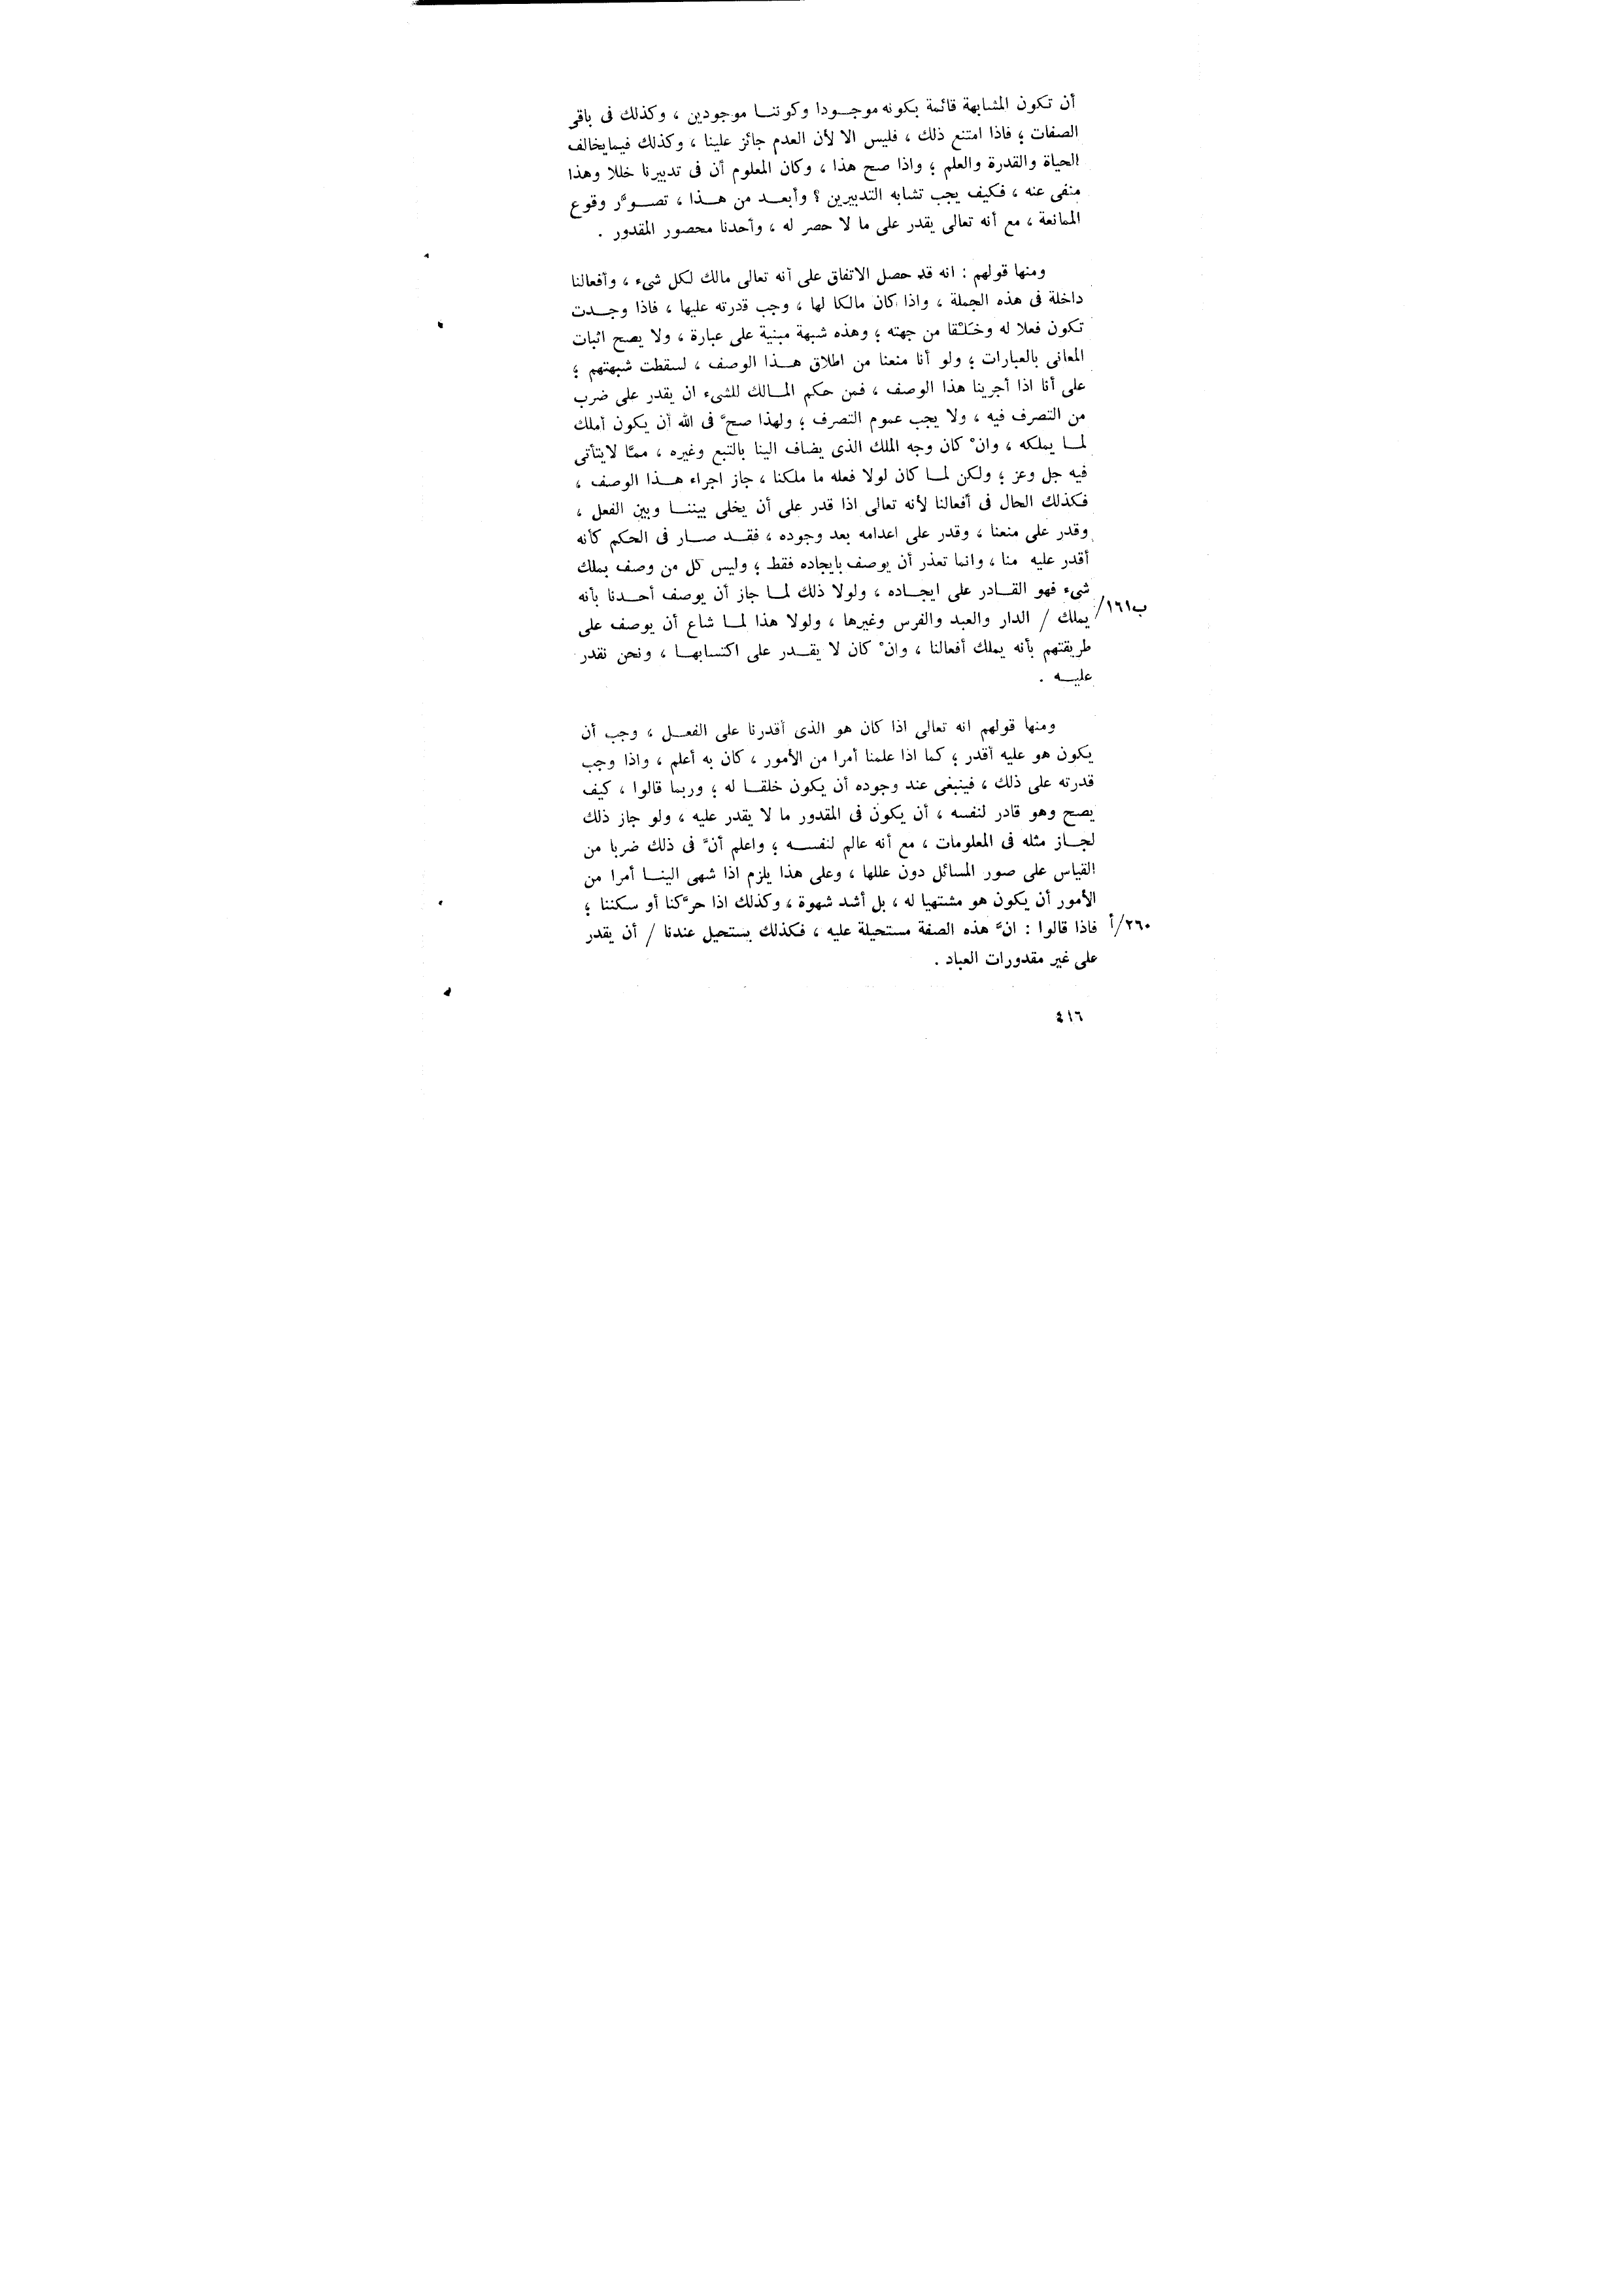 أن تكون المشابهة قائمة بكونه موجودا وكوننا موجودين ، وكذلك فى باقى
الصفات ؛ فاذا امتنع ذلك ، فليس الا لأن العدم جائز علينا ، وكذلك فيما يخالف
الحياة والقدرة والعلم ؛ واذا صح هذا ، وكان المعلوم أن فى تدبيرنا خللا وهذا
منفى عنه ، فكيف يجب تشابه التدبيرين ؟ وأبعد من هذا ، تصوّر وقوع
الممانعة ، مع أنه تعالى يقدر على ما لا حصر له ، وأحدنا محصور المقدور .
ومنها قولهم : انه قد حصل الاتفاق على أنه تعالى مالك لكل شىء ، وأفعالنا
داخلة فى هذه الجملة ، واذا كان مالكا لها ، وجب قدرته عليها ، فاذا وجدت
تكون فعلا له وخَلْقا من جهته ؛ وهذه شبهة مبنية على عبارة ، ولا يصح اثبات
المعانى بالعبارات ؛ ولو أنا منعنا من اطلاق هذا الوصف ، لسقطت شبهتهم ؛
على أنا اذا أجرينا هذا الوصف ، فمن حكم المالك للشىء ان يقدر على ضرب
من التصرف فيه ، ولا يجب عموم التصرف ؛ ولهذا صحَّ فى الله أن يكون أملك
لما يملكه ، وانْ كان وجه الملك الذى يضاف الينا بالتبع وغيره ، ممّا لايتأتى
فيه جل وعز ؛ ولكن لما كان لولا فعله ما ملكنا ، جاز اجراء هذا الوصف ،
فكذلك الحال فى أفعالنا لأنه تعالى اذا قدر على أن يخلى بيننا وبين الفعل ،
وقدر على منعنا ، وقدر على اعدامه بعد وجوده ، فقد صار فى الحكم كأنه
أقدر عليه منا ، وانما تعذر أن يوصف بايجاده فقط ؛ وليس كل من وصف بملك
شىء فهو القادر على ايجاده ، ولولا ذلك لما جاز أن يوصف أحدنا بأنه
١٦١/ب يملك / الدار والعبد والفرس وغيرها ، ولولا هذا لما شاع أن يوصف على
طريقتهم بأنه يملك أفعالنا ، وانْ كان لا يقدر على اكتسابها ، ونحن نقدر
عليه .
ومنها قولهم انه تعالى اذا كان هو الذى أقدرنا على الفعل ، وجب أن
يكون هو عليه أقدر ؛ كما اذا علمنا أمرا من الأمور ، كان به أعلم ، واذا وجب
قدرته على ذلك ، فينبغى عند وجوده أن يكون خلقا له ؛ وربما قالوا ، كيف
يصح وهو قادر لنفسه ، أن يكون فى المقدور ما لا يقدر عليه ، ولو جاز ذلك
لجاز مثله فى المعلومات ، مع أنه عالم لنفسه ؛ واعلم أنَّ فى ذلك ضربا من
القياس على صور المسائل دون عللها ، وعلى هذا يلزم اذا شهى الينا أمرا من
الأمور أن يكون هو مشتهيا له ، بل أشد شهوة ، وكذلك اذا حرَّكنا أو سكننا ؛
٢٦٠/أ فاذا قالوا : انَّ هذه الصفة مستحيلة عليه ، فكذلك يستحيل عندنا / أن يقدر
على غير مقدورات العباد .
٤١٦